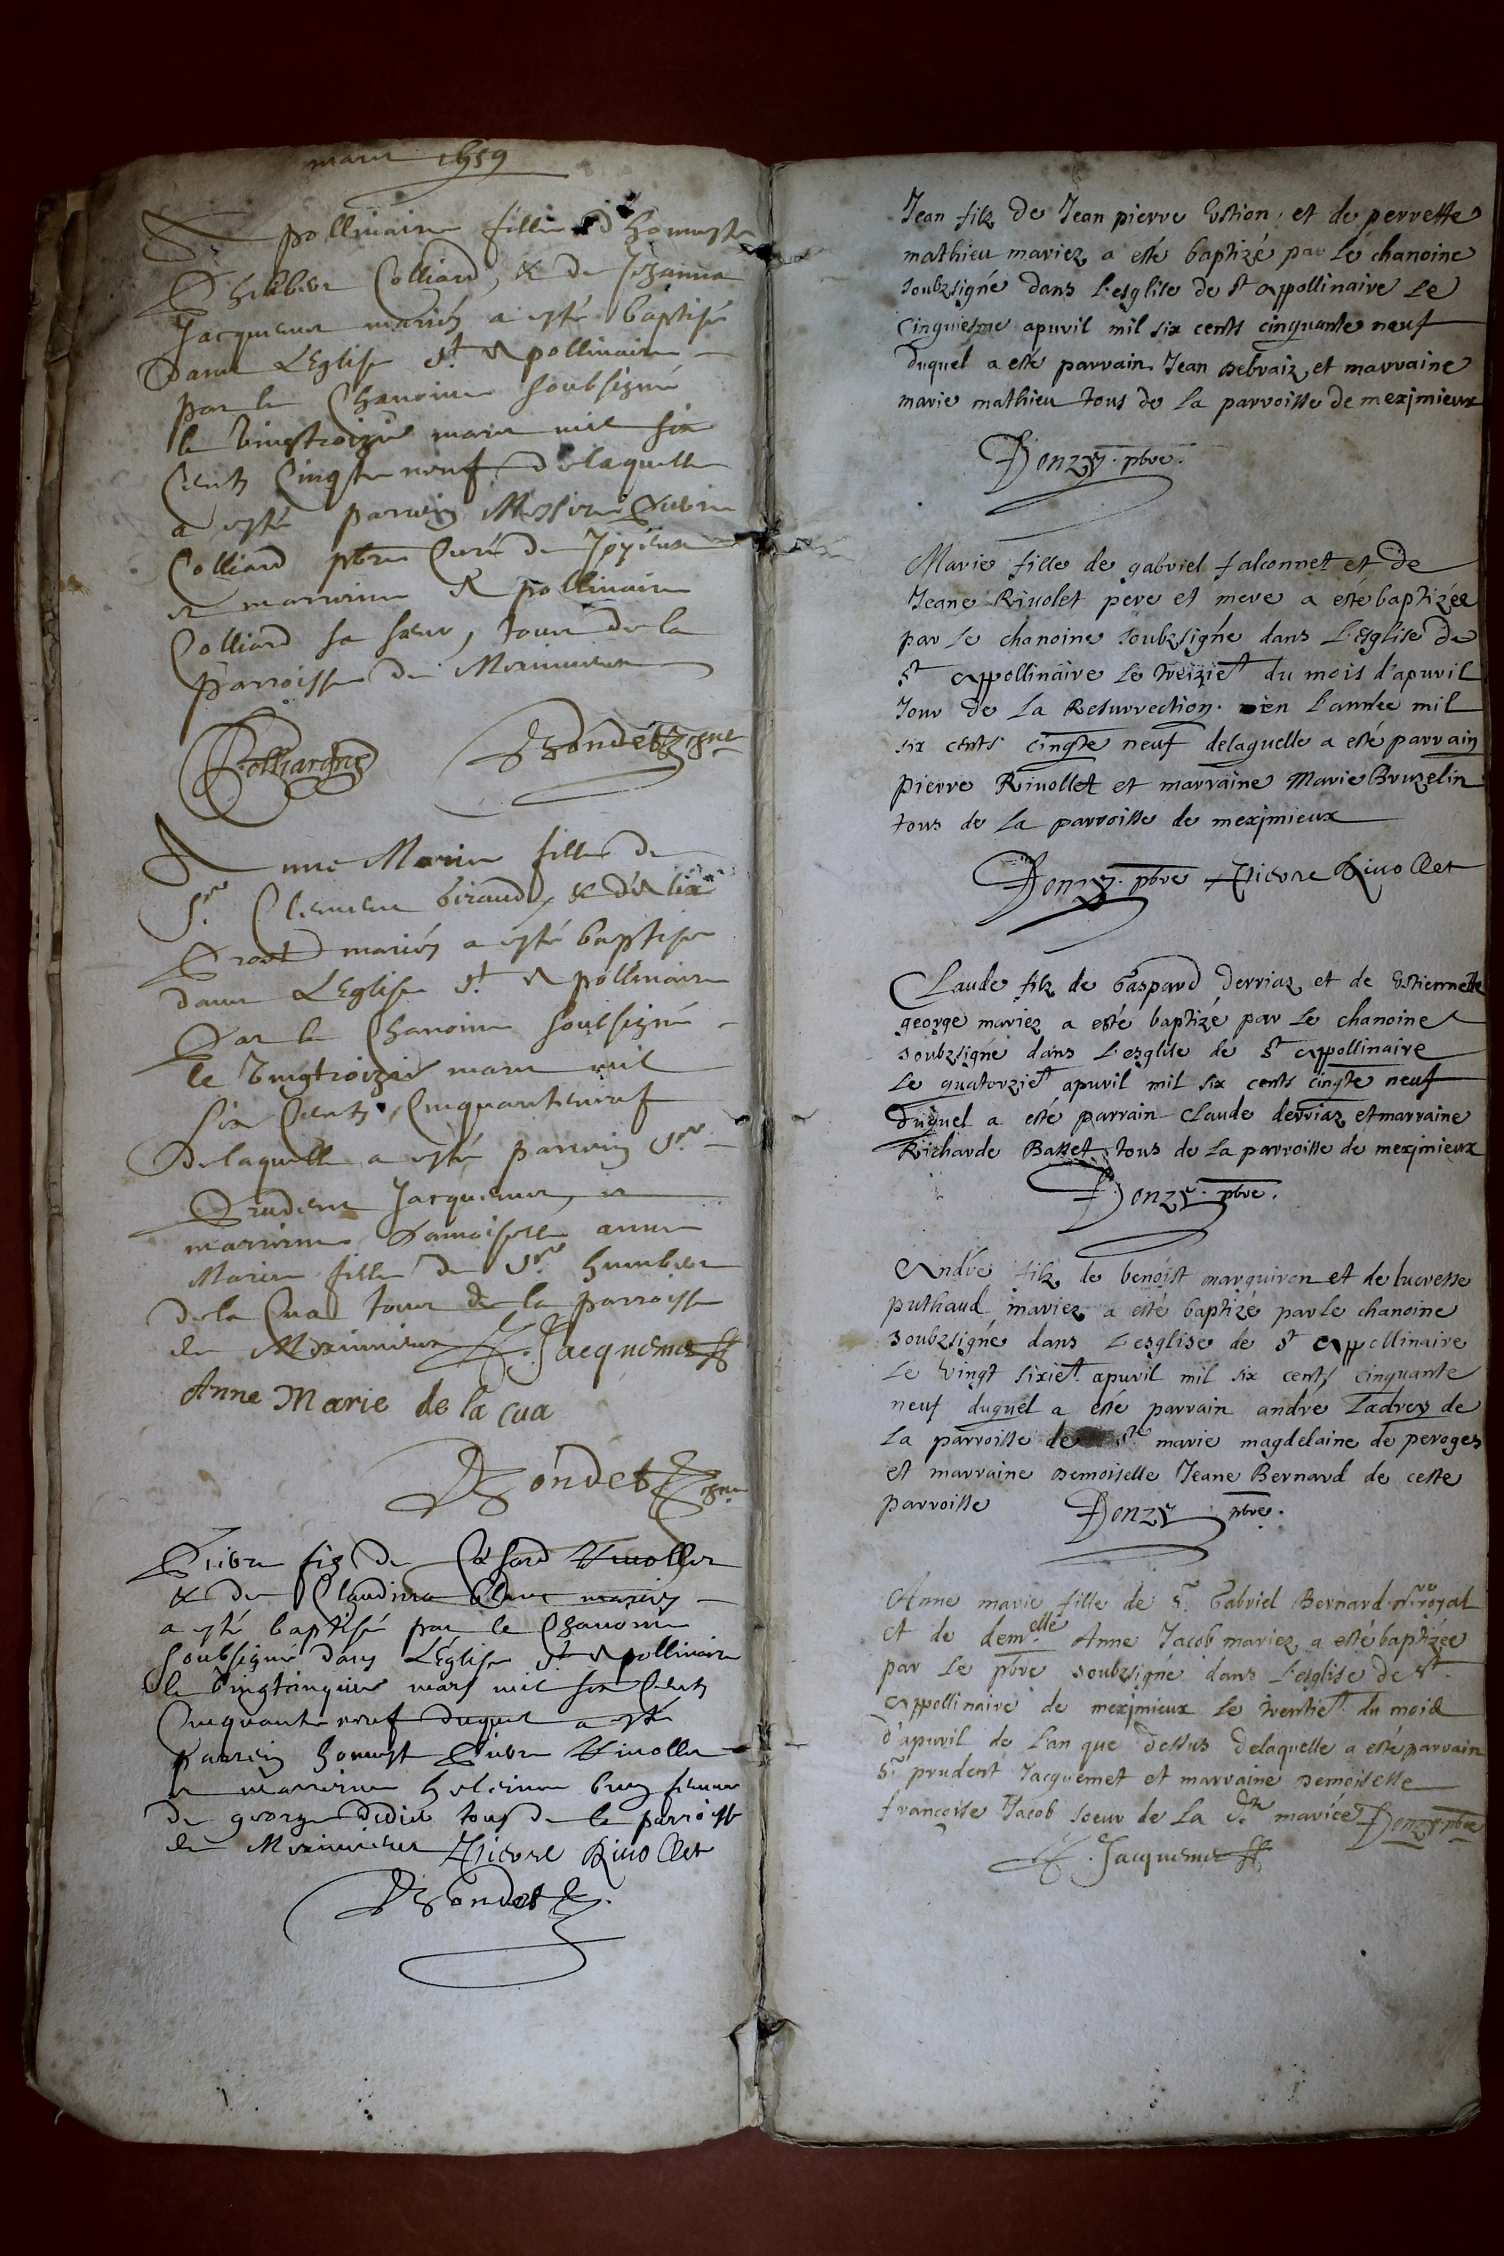 mars 1659
Appollinaire fille d'honneste
Philibert Colliard, & de Jehanne
Jacquemet mariés a esté baptisée
dans L'Eglise St Appollinaire
par le Chanoine soubsigné
le vingtroizie mars mil six
Cents Cinqte neuf delaquelle
a esté parrein Messire
Colliard pbre Curé de
et marreine Appollinaire
Colliard sa sœur, tous de la
parroisse de Meximieux
Colliard Bondet
Anne Marie fille de
Sr. Clement Giraud, & d'Alix
Prost mariés a esté baptisée
dans L'Eglise St Appollinaire
Par le Chanoine soubsigné
le vingtroizie mars mil
six Cents Cinquanteneuf
Delaquelle a esté parrein Sr.
Prudent Jacquemet, et
marreine Damoiselle anne
Marie fille de Sr. humbert
de la Cua tous de la parroisse
de Meximieux P. Jacquemet
Anne Marie de la cua
Bondet
Pierre fiz de Rivollet
& de Claudine mariez
a esté baptisé par le Chanoine
soubsigné dans L'Eglise St Appollinaire
le vingtcinquie mars mil six Cents
Cinquante neuf duquel a esté
parrein honnest Pierre Rivollet
et marreine femme
de george Didier tous de la parroisse
de Meximieux Pierre Rivollet
Bondet
Jean filz de Jean pierre Estion, et de perrette
mathieu mariez a esté baptizé par le chanoine
soubzsigné dans L'esglise de St appollinaire le
cinquiesme apuril mil six cents cinquante neuf
duquel a esté parrain Jean Debraiz et marraine
marie mathieu tous de la parroisse de meximieux
Donzy. pbre.
Marie fille de gabriel falconnet et de
Jeane Riuolet pere et mere a esté baptizée
par le chanoine soubzsigné dans L'Esglise de
St appollinaire le treiziet du mois d'apuril
Jour de la Resurrection. en L'année mil
six cents cinqte neuf delaquelle a esté parrain
pierre Riuollet et marraine Marie Bruzelin
tous de la parroisse de meximieux
Donzy. pbre Pierre Riuollet
Claude filz de Gaspard Derriaz et de Estiennette
george mariez a esté baptizé par le chanoine
soubzsigné dans L'esglise de St appollinaire
Le quatorziet apuril mil six cents cinqte neuf
Duquel a esté parrain Claude derriaz et marraine
Richarde Basset tous de la parroisse de meximieux
Donzy. pbre.
André filz de benoist marquiron et de lucresse
puthaud mariez a esté baptizé par le chanoine
soubzsigné dans L'esglise de St appollinaire
Le vingt sixiet apuril mil six cents cinquante
neuf duquel a esté parrain andré Ladrey de
La parroisse de Ste marie magdelaine de peroges
et marraine Demoiselle Jeane Bernard de ceste
parroisse Donzy pbre.
Anne marie fille de Sr. Gabriel Bernard nre royal
et de demelle Anne Jacob mariez a esté baptizée
par le pbre soubzsigné dans L'esglise de St
appollinaire de meximieux le trentiet du mois
d'apuril de L'an que Dessus delaquelle a esté parrain
Sr prudent Jacquemet et marraine Demoiselle
francoise Jacob soeur de La de mariée Donzy pbre
P. Jacquemet